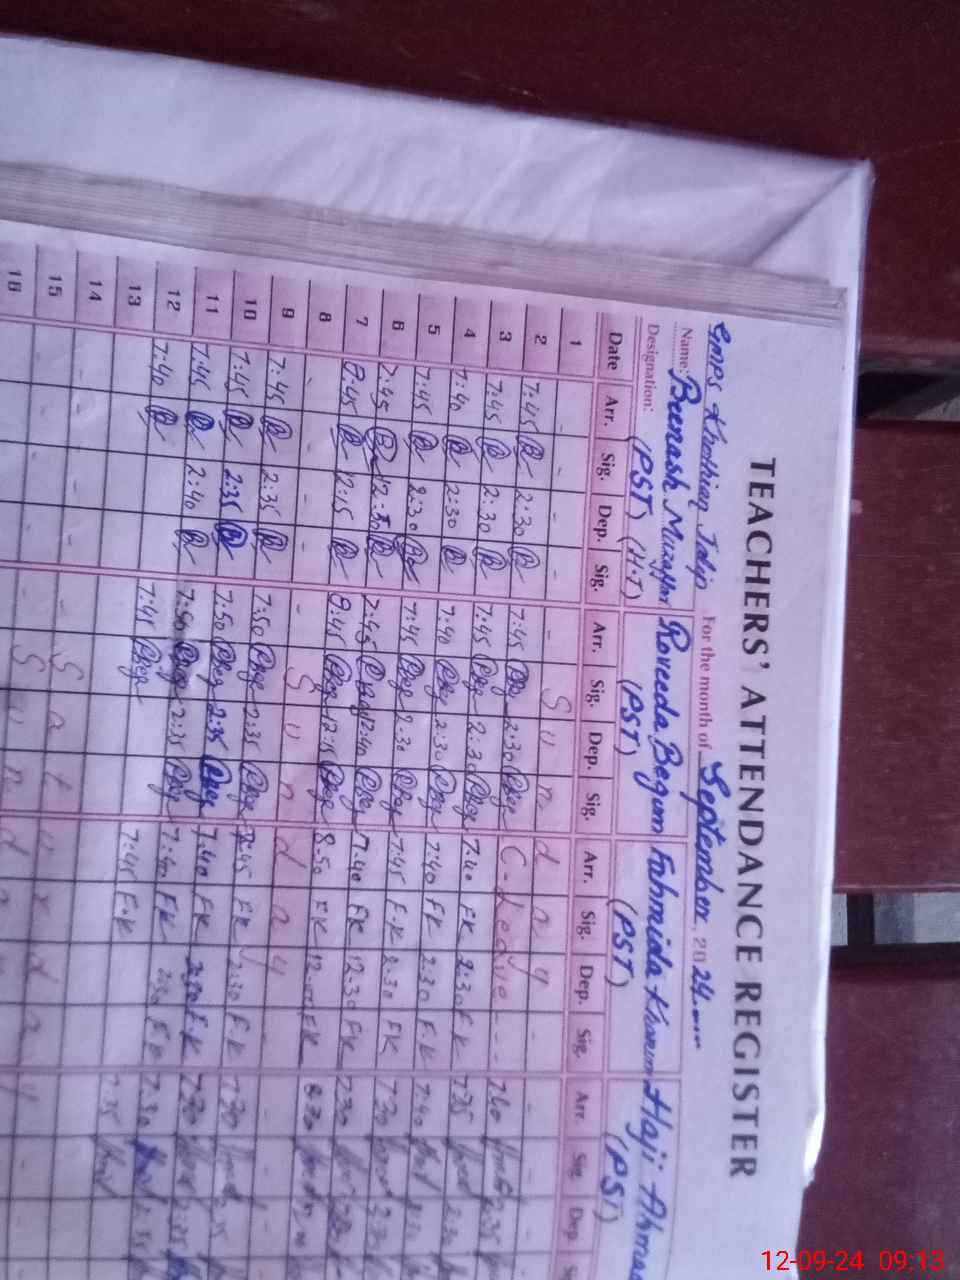 TEACHERS' ATTENDANCE REGISTER
GMPS Khothian Jadip For the month of September, 2024
Name: Beenash Muzaffar Raveeda Begum Fahmida Khanum Haji Ahmad
Designation: (PST) (H.T) (PST) (PST) (PST)
Date Arr. Sig. Dep. Sig. Arr. Sig. Dep. Sig. Arr. Sig. Dep. Sig. Arr. Sig. Dep.
1 - - - - - Sunday - -
2 7:45 B 2:30 B 7:45 RBeg 2:30 RBeg C-Leave - - - 7:40
3 7:45 B 2:30 B 7:45 RBeg 2:30 RBeg 7:40 FK 2:30 F.K 7:35 2:30
4 7:40 B 2:30 B 7:40 RBeg 2:30 RBeg 7:40 FK 2:30 F.K 7:40
5 7:45 B 2:30 B 7:45 RBeg 2:30 RBeg 7:45 F.K 2.30 FK 7:30 2:30
6 7:45 B 12:30 B 7:45 RBeg 12:40 RBeg 7:40 FK 12-30 FK 7:30
7 8:45 B 12:15 B 8:45 RBeg 12:15 RBeg 8:50 FK FK 8:30
8 - - - Sunday - -
9 7:45 B 2:35 B 7:50 RBeg 2:35 RBeg 7:45 FK 2:30 F.K 7:30 2:35
10 7:45 B 2:35 B 7:50 RBeg 2:35 RBeg 7:40 FK 2:30 F.K 7:30 2:35
11 7:45 B 2:40 B 7:50 RBeg 2:35 RBeg 7:40 FK 2:30 F.K 7:30 2:35
12 7:40 B 7:45 RBeg 7:45 F.K 7:35
13
14 - - - - - Saturday
15 - - - - - Sunda
16
12-09-24 09:13